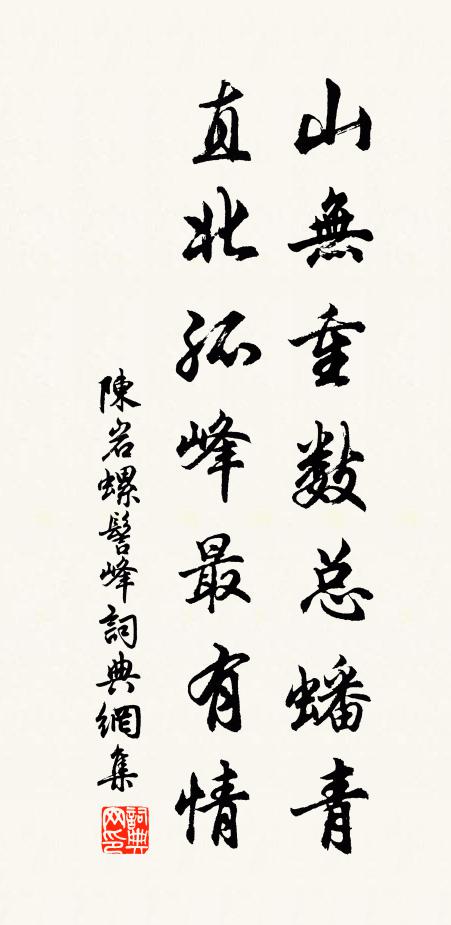 山無重數总蟠青
直北孤峰最有情
陳岩螺髻峰詞典網集
詞典
网印